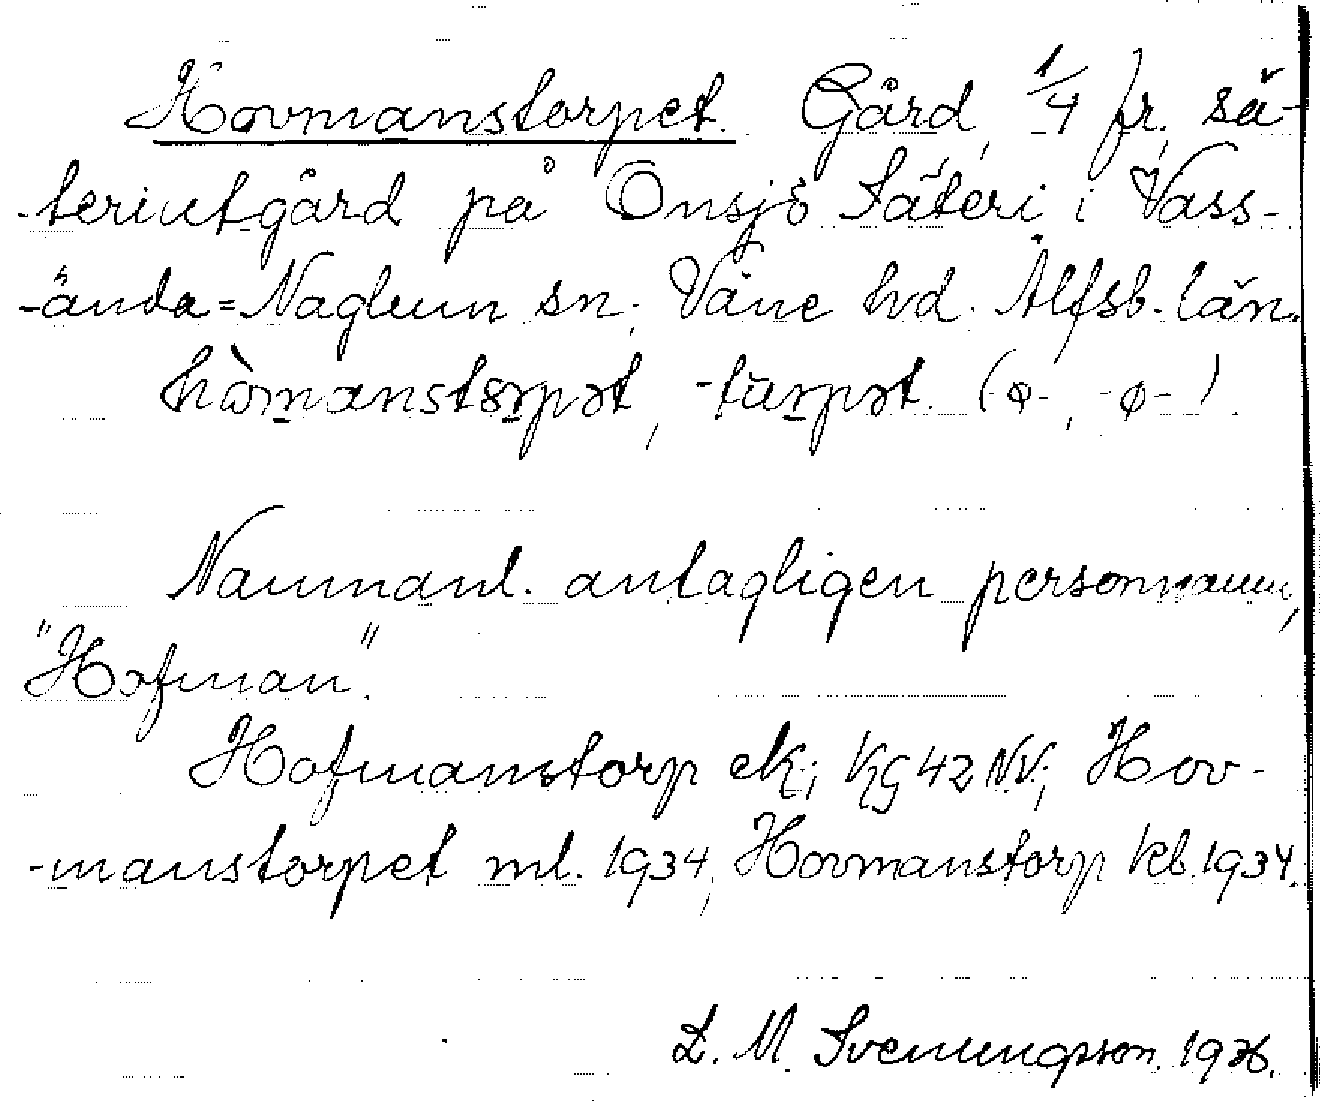 Hovmanstorpet. Gård, 1/4 fr. sä-
-teriutgård på Onsjö Säteri i Vass-
-ända=Naglum sn. Väne hd. Älfsb. län.
hòmanstɷrpət, -turpət. (ø-, -ø-).
Namnanl. antagligen personnamn,
"Hofman".
Hofmanstorp ek; KG 42 NV; Hov-
-manstorpet ml. 1934, Hovmanstorp kb. 1934.
L. M. Svenungsson. 1936.